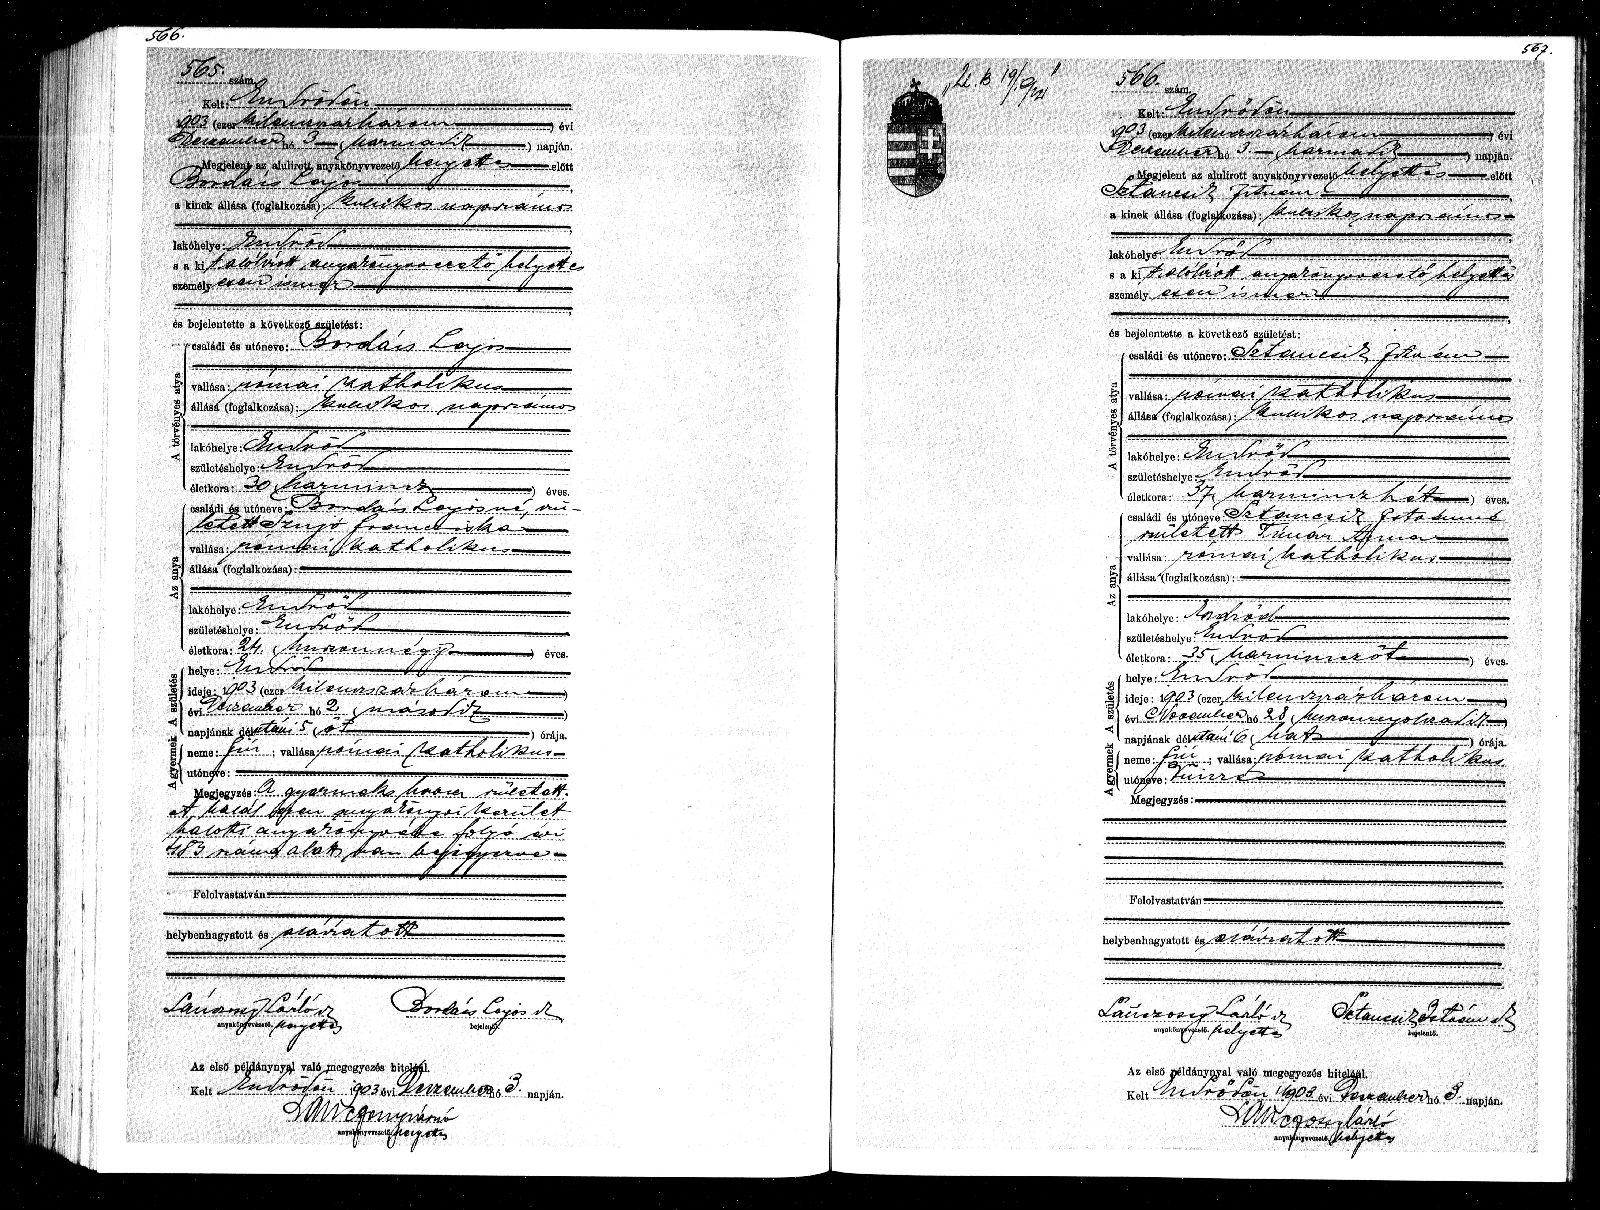 566.
565. szám.
Kelt: Endrődön
1903 (ezer kilenczszázhárom) évi
December hó 3 (harmadik) napján.
Megjelent az alulirott anyakönyvvezető helyettes előtt
Bordás Lajos
a kinek állása (foglalkozása): kubikos napszámos
lakóhelye: Endrőd
s a kit alólirott anyakönyvvezető helyettes
személyesen ismer
és bejelentette a következő születést:
A törvényes atya
családi és utóneve: Bordás Lajos
vallása: római katholikus
állása (foglalkozása): kubikos napszámos
lakóhelye: Endrőd
születéshelye: Endrőd
életkora: 30 (harmincz) éves.
Az anya
családi és utóneve: Bordás Lajosné, szü-
letett Szujó Francziska
vallása: római katholikus
állása (foglalkozása):
lakóhelye: Endrőd
születéshelye: Endrőd
életkora: 24 (huszonnégy) éves.
A gyermek A születés
helye: Endrőd
ideje: 1903 (ezer kilenczszázhárom)
évi December hó 2 (második)
napjának délutáni 5 (öt) órája.
neme: fiú; vallása: római katholikus
utóneve:
Megjegyzés: A gyermek halva született.
A halál ezen anyakönyvi kerület
halotti anyakönyvébe folyó évi
483 szám alatt van bejegyezve
Felolvastatván
helybenhagyatott és aláiratott
Lánczosy László sk
anyakönyvvezető. helyettes
Bordás Lajos sk
bejelentő.
Az első példánynyal való megegyezés hiteléül.
Kelt Endrődön 1903 évi December hó 3. napján.
Lánczosy László
anyakönyvvezető. helyettes
567.
566. szám.
Kelt: Endrődön
1903 (ezer kilenczszázhárom) évi
December hó 3 (harmadik) napján.
Megjelent az alulirott anyakönyvvezető helyettes előtt
Sztancsik István
a kinek állása (foglalkozása): kubikos napszámos
lakóhelye: Endrőd
s a kit alólirott anyakönyvvezető helyettes
személyesen ismer
és bejelentette a következő születést:
A törvényes atya
családi és utóneve: Sztancsik István
vallása: római katholikus
állása (foglalkozása): kubikos napszámos
lakóhelye: Endrőd
születéshelye: Endrőd
életkora: 37 (harminczhét) éves.
Az anya
családi és utóneve: Sztancsik Istvánné
született Tímár Anna
vallása: római katholikus
állása (foglalkozása):
lakóhelye: Endrőd
születéshelye: Endrőd
életkora: 35 (harminczöt) éves.
A gyermek A születés
helye: Endrőd
ideje: 1903 (ezer kilenczszázhárom)
évi November hó 28 (huszonnyolczadik)
napjának délutáni 6 (hat) órája.
neme: fiú; vallása: római katholikus
utóneve: Imre
Megjegyzés:
Felolvastatván
helybenhagyatott és aláiratott
Lánczosy László sk
anyakönyvvezető. helyettes
Sztancsik István sk
bejelentő.
Az első példánynyal való megegyezés hiteléül.
Kelt Endrődön 1903 évi December hó 3. napján.
Lánczosy László
anyakönyvvezető. helyettes